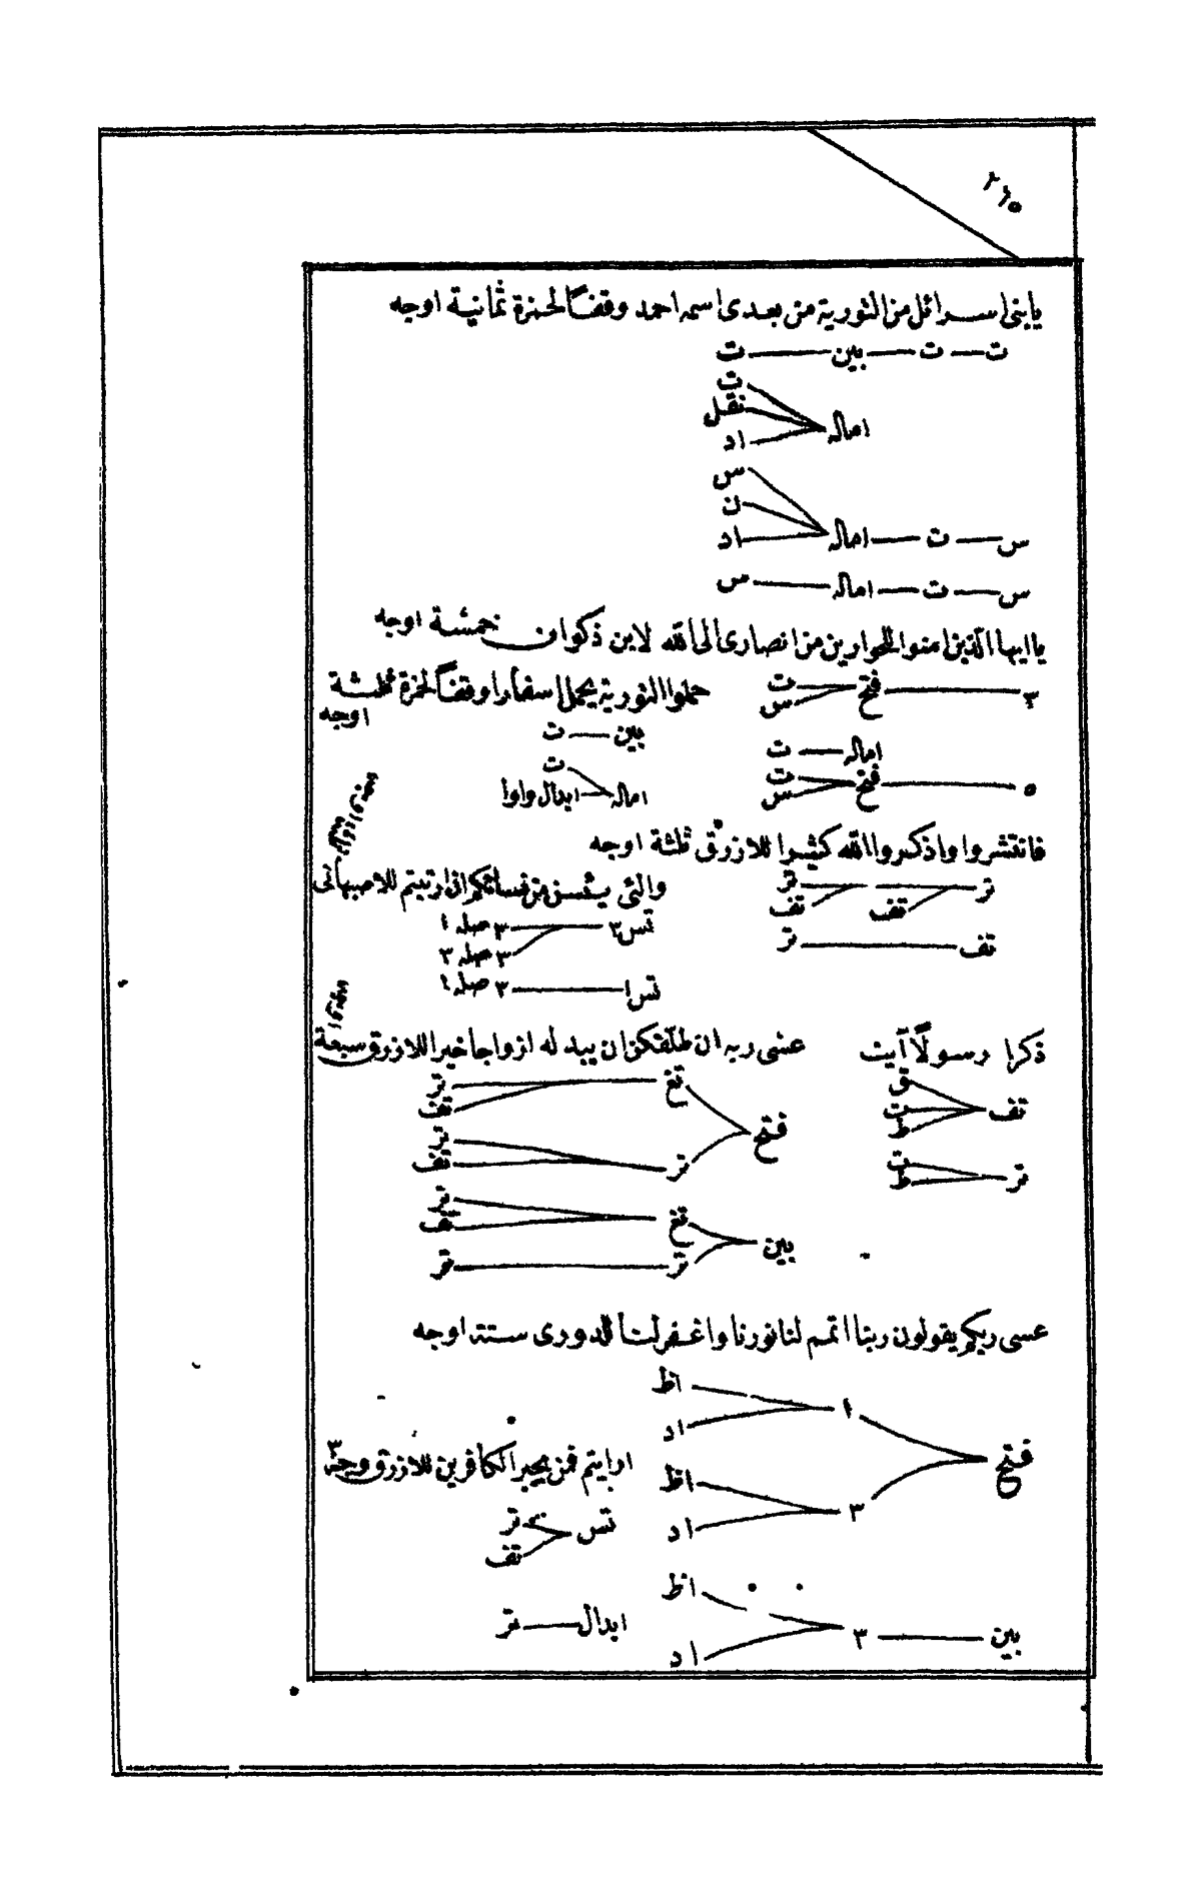 ٢٦٥
يابنى اسرائل من التورية من بعدى اسمه احمد وقفا لحمزة ثمانية اوجه
ت ت بين ت
ت
نقل
اماله
اد
س
ن
س ت اماله اد
س ت اماله س
يا ايها الذين امنوا للحوارين من انصارى الى الله لابن ذكوان خمسة اوجه
٣ فتح ت
س
اماله ت
٥ فتح ت
س
حملوا التورية يحمل اسفارا وقفا لحمزة ثلثة
اوجه
بين ت
ت
اماله ابدال واوا
فانتشروا واذكروا الله كثيرا للازرق ثلثة اوجه
تر تر
تف تف
تف تر
والئى يئسن من نسائكم ان ارتبتم للاصبهانى
تس٣ ٣ صله ١
٣ صله ٣
تس١ ٣ صله ١
ذكرا رسولاً آيت
ق
تف ت
ط
تر ت
ط
عسى ربه ان طلقكن ان يبدله ازواجا خيرا للازرق سبعة
تغ تر
تف
فتح
تر تر
تف
تغ تر
تف
بين
تر تر
عسى ربكم يقولون ربنا اتمم لنا نورنا واغفر لنا للدورى ستة اوجه
اظ
١
اد
فتح
اظ
٣
اد
اظ
بين ٣
اد
ارايتم فمن يجير الكافرين للازرق وجه ٣
تس تر
تف
ابدال تر